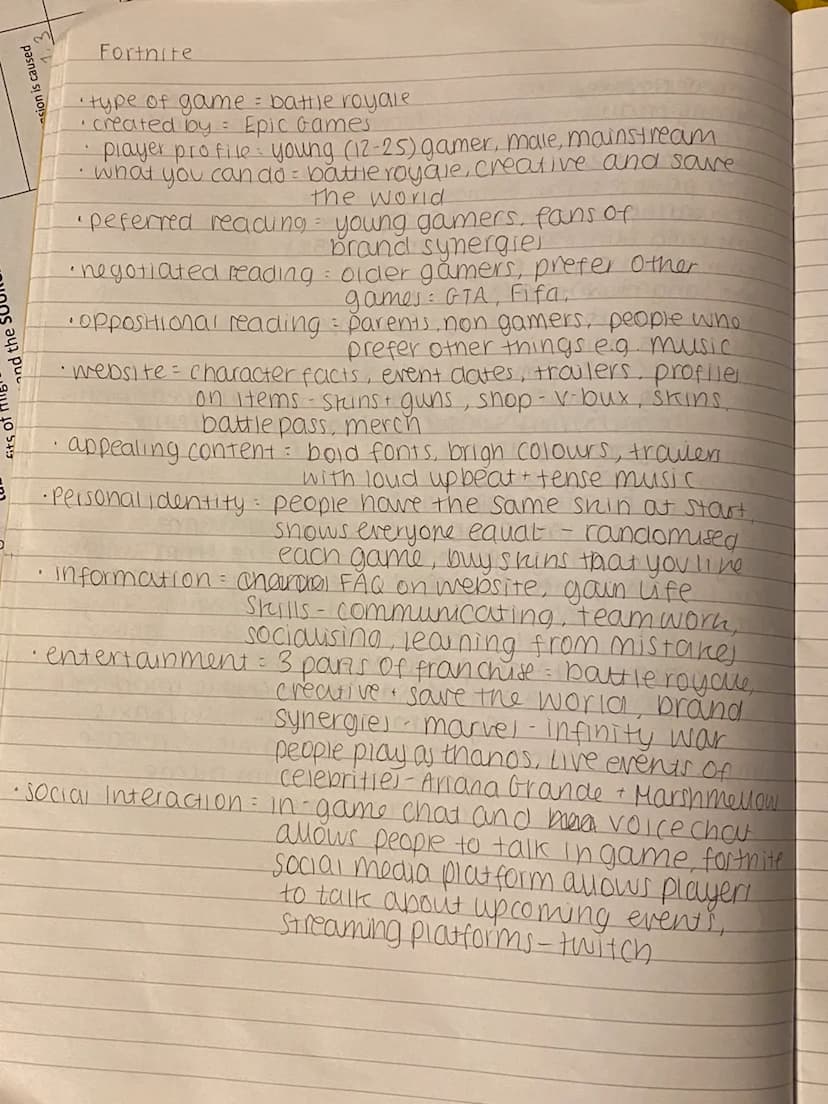 sion is caused
1.3
Fortnite
• type of game = battle royale
• created by = Epic Games
• player profile = young (12-25) gamer, male, mainstream
• what you can do = battle royale, creative and save
the world
• peferred reading = young gamers, fans of
brand synergies
• negotiated reading = older gamers, prefer other
games = GTA, Fifa,
• oppositional reading = parents, non gamers, people who
prefer other things e.g. music
• website = character facts, event dates, trailers, profiles
on items - skins + guns, shop - v-bux, skins,
battle pass, merch
• appealing content = bold fonts, brigh colours, trailers
with loud upbeat + tense music
• personal identity = people have the same skin at start,
shows everyone equal - randomised
each game, buy skins that you like
• information = FAQ on website, gain life
skills - communicating, teamwork,
socialising, learning from mistakes
• entertainment = 3 parts of franchise = battle royale,
creative + save the world, brand
synergies - marvel - infinity war
people play as thanos, live events of
celebrities - Ariana Grande + Marshmellow
• social interaction = in-game chat and voice chat
allows people to talk in game, fortnite
social media platform allows players
to talk about upcoming events,
streaming platforms - twitch